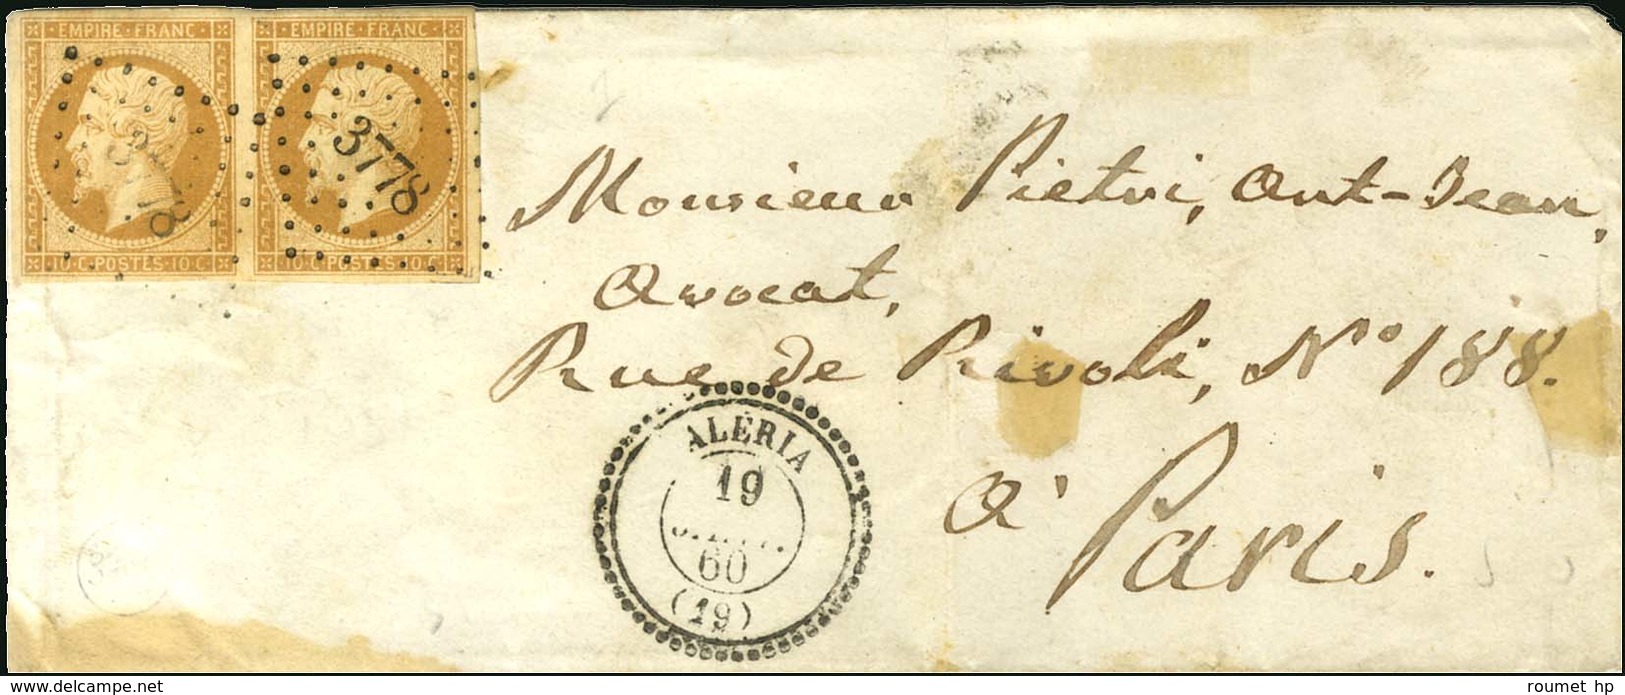 EMPIRE·FRANC· EMPIRE·FRANC·
3778 3778
10·C·POSTES·10·C· 10·C·POSTES·10·C·
Monsieur Pietri, Ant-Jean,
Avocat,
Rue de Rivoli, N° 188.
à Paris.
ALÉRIA
19
60
(19)
www.delcampe.net
roumet hp